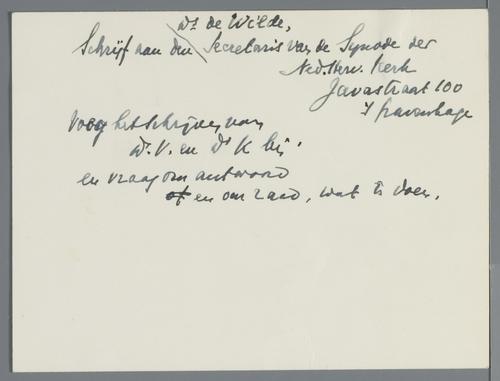 Ds de Wilde,
Schrijf aan den Secretaris van de Synode der
Ned. Herv. Kerk
Javastraat 100
's Gravenhage
Voeg het schrijven van
Ds. V. en Ds K bij.
en vraag om antwoord
of en om raad, wat te doen.